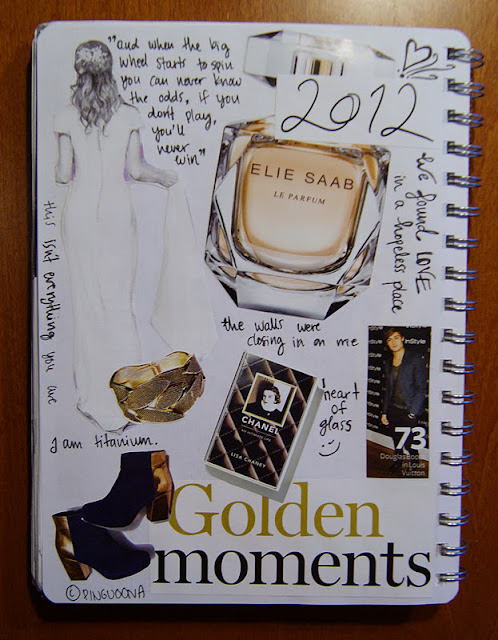 "and when the big
wheel starts to spin
you can never know
the odds, if you
don't play,
you'll
never
win"
2012
ELIE SAAB
LE PARFUM
we found LOVE
in a hopeless place
this isn't everything you are
the walls were
closing in on me
InStyle
73
Douglas Booth
in Louis
Vuitton
heart
of
glass
CHANEL
LISA CHANEY
I am titanium.
Golden
moments
©PINGUOONA